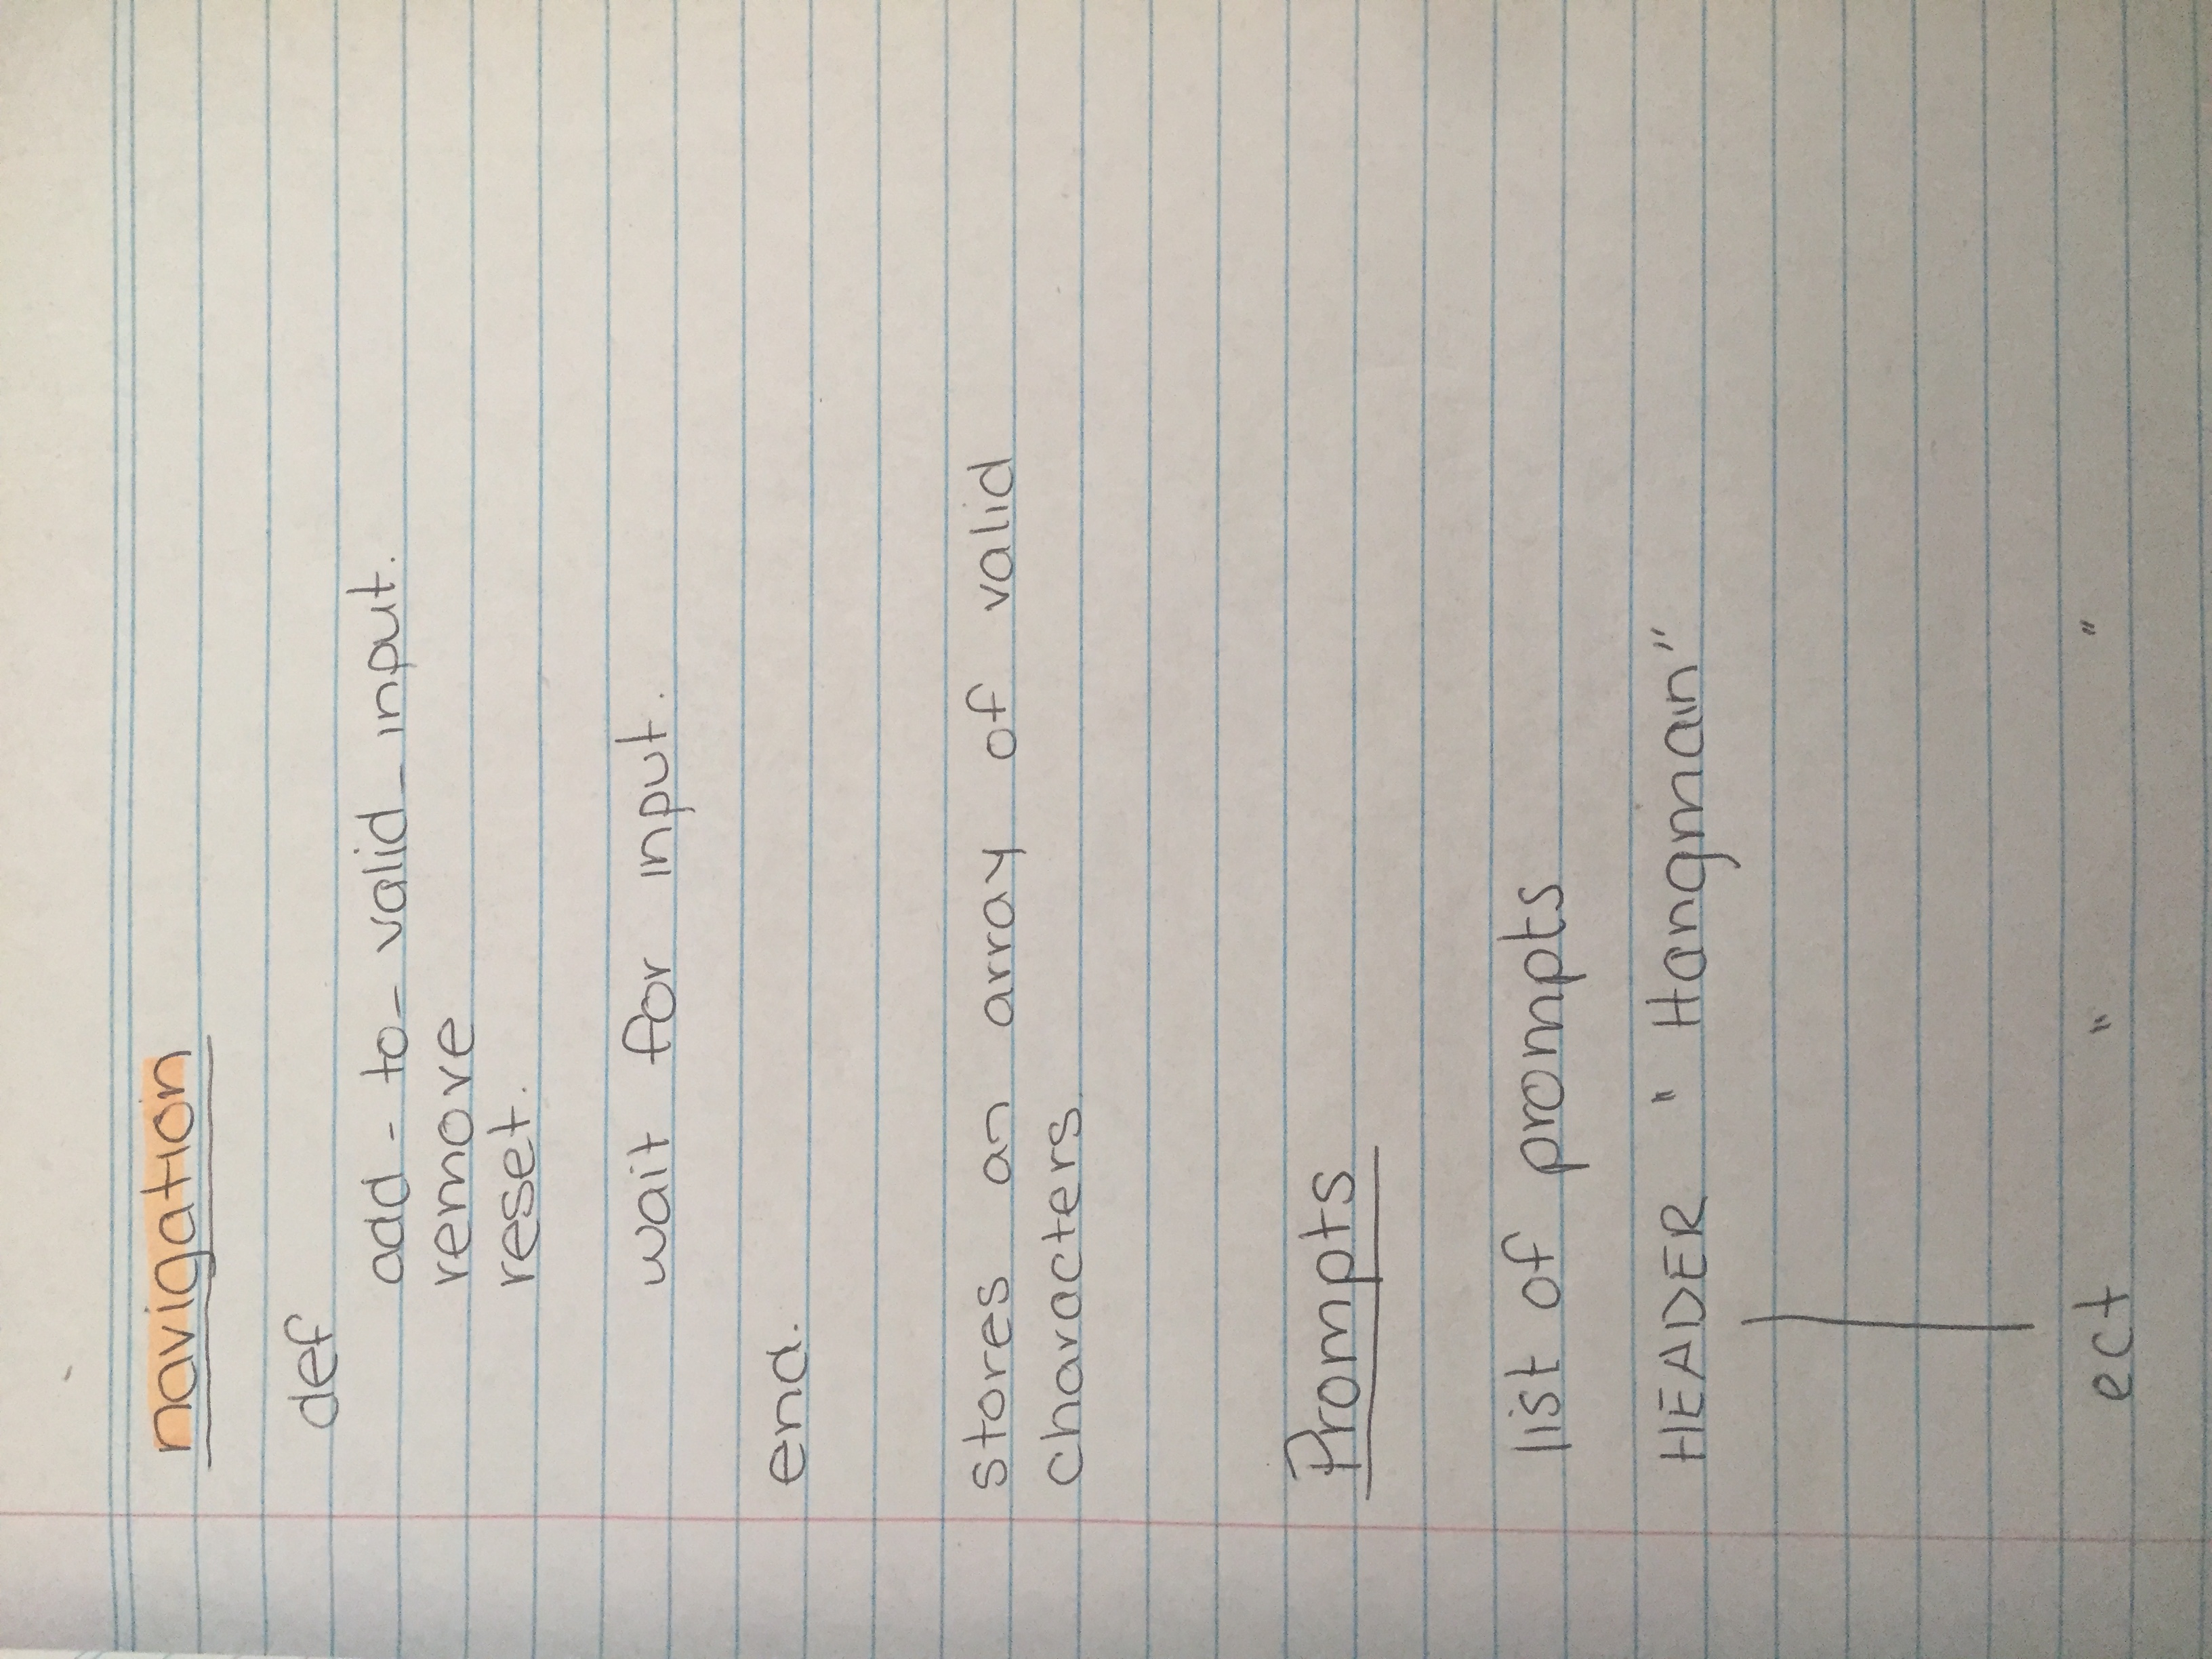 navigation
def
add - to _ valid _ input.
remove
reset.
wait for input.
end.
stores an array of valid
characters.
Prompts
list of prompts
HEADER " Hangman"
ect " "